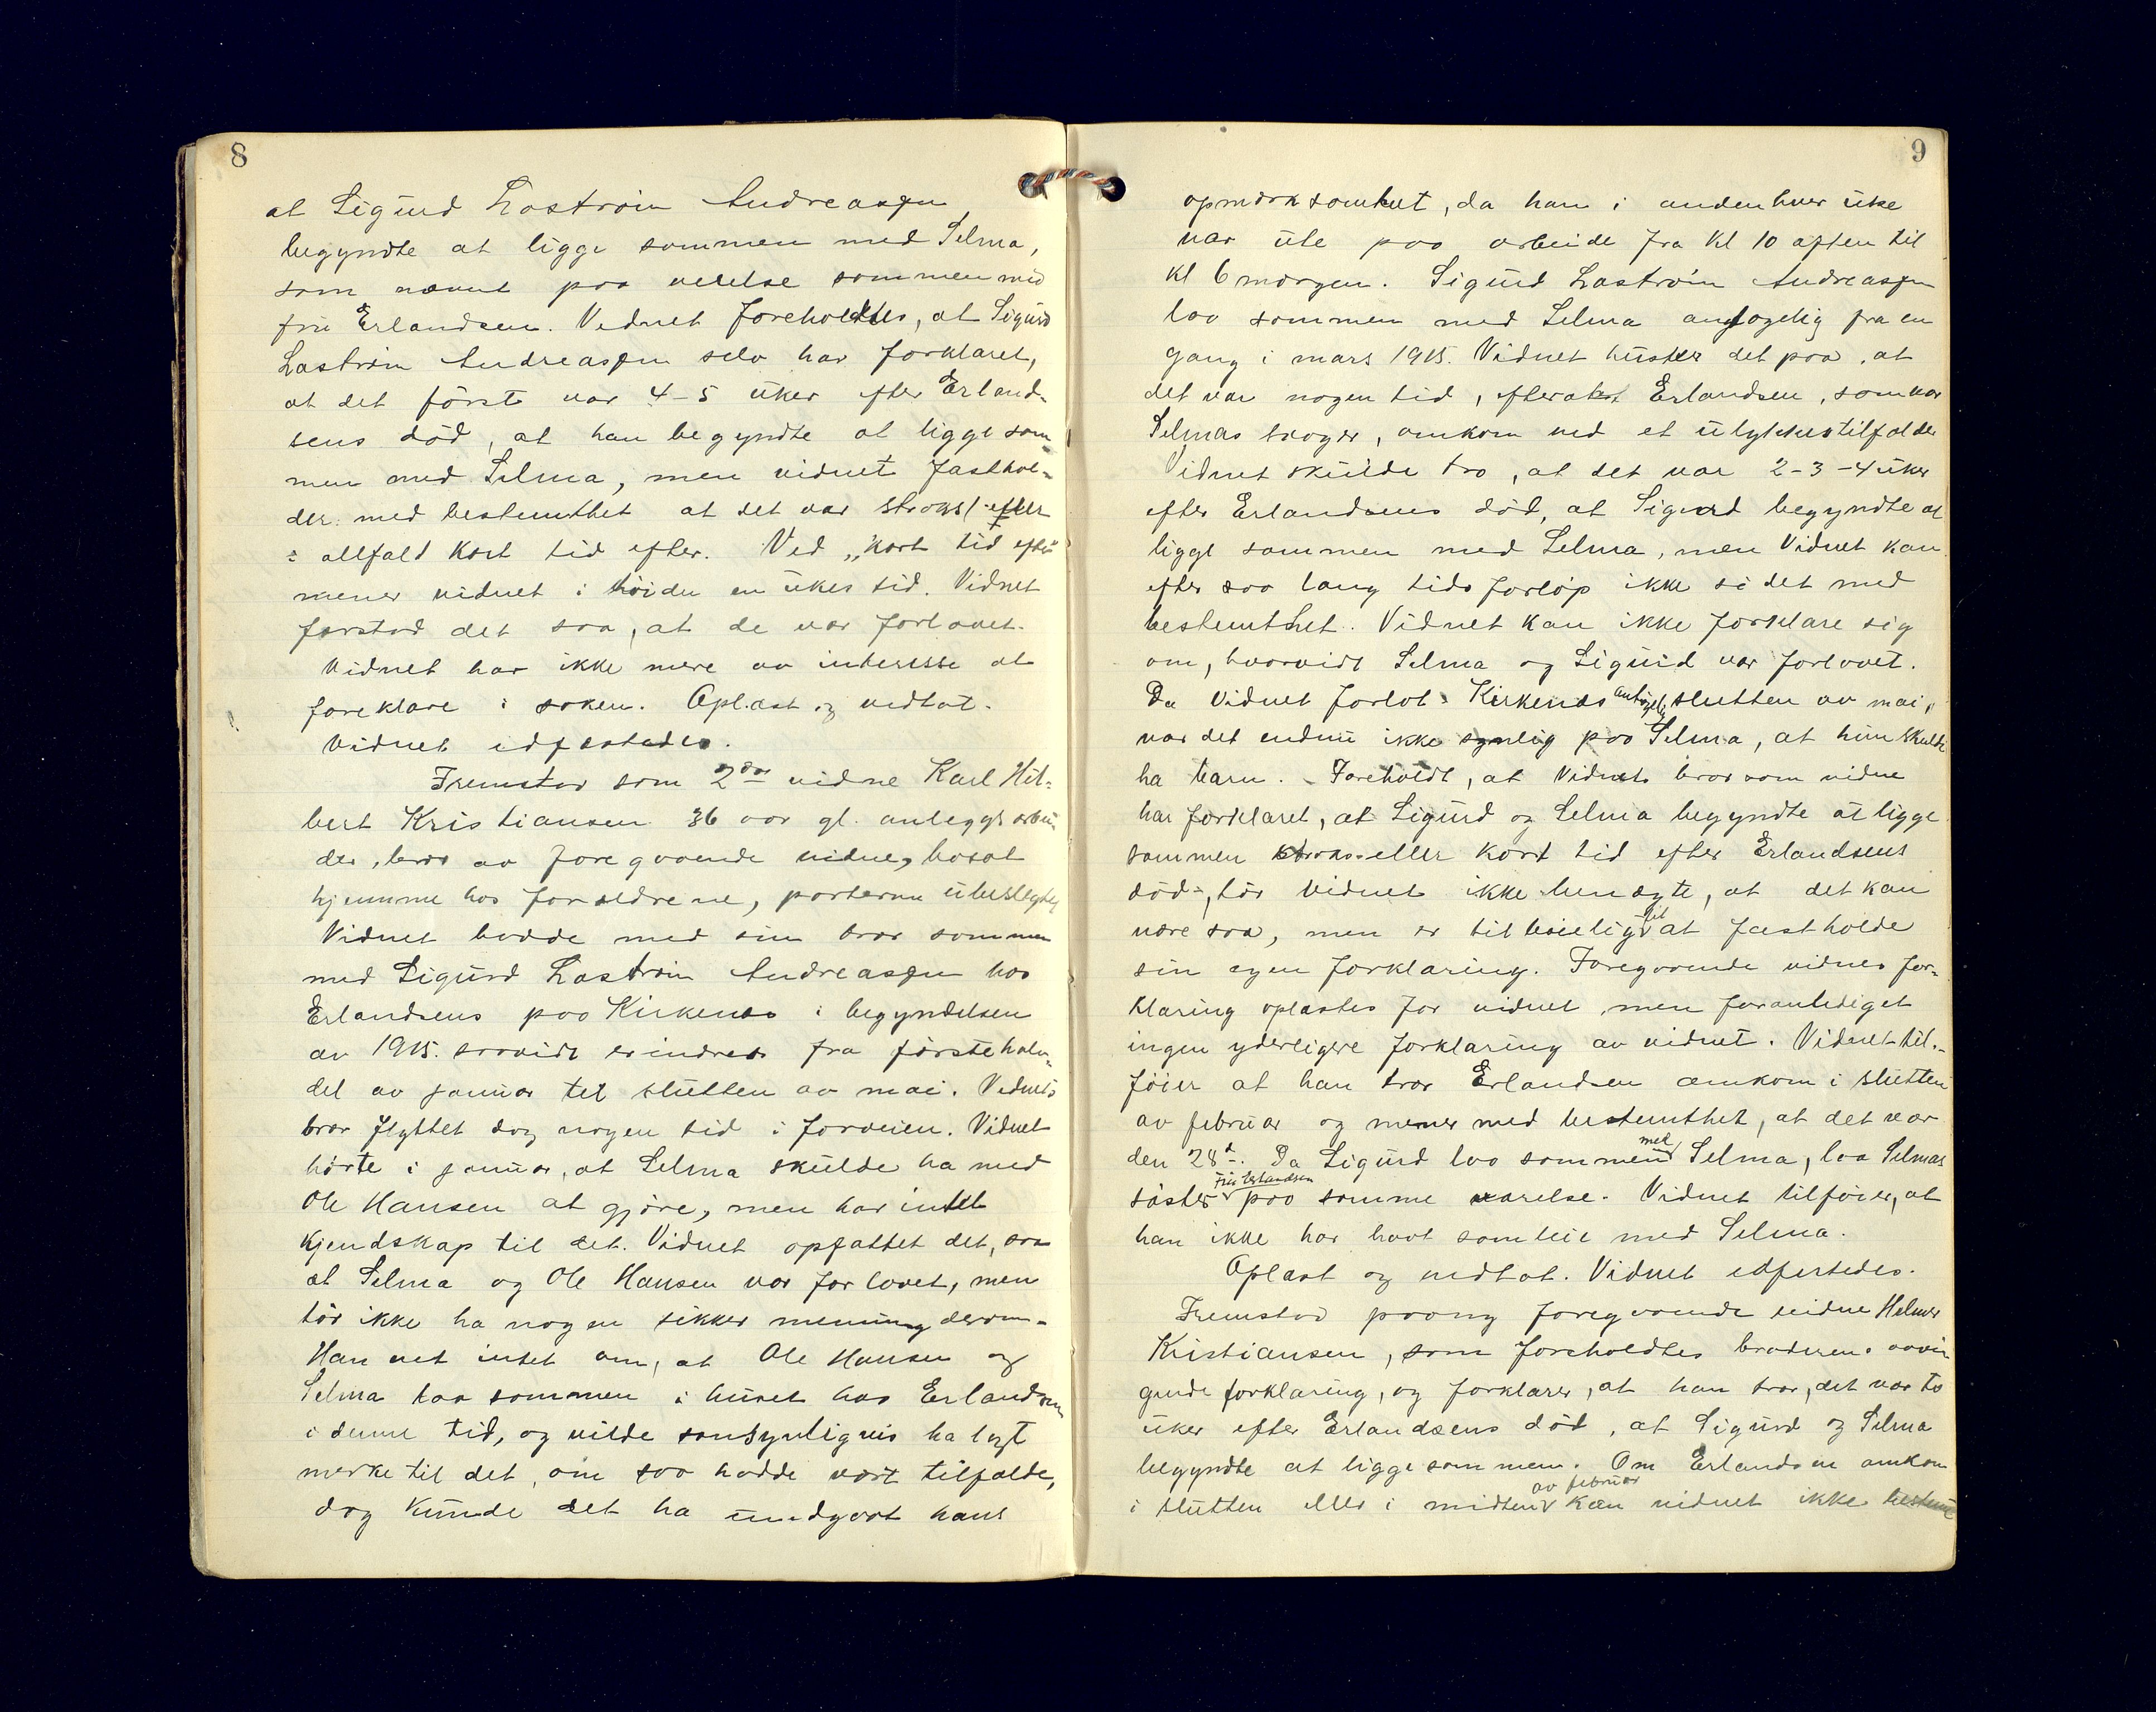 8
at Sigurd Laström Andreassen
begyndte at ligge sammen med Selma,
som nævnt paa værelse sammen med
fru Erlandsen. Vidnet foreholdtes, at Sigurd
Laström Andreassen selv har forklaret,
at det först var 4-5 uker efter Erland-
sens död, at han begyndte at ligge sam-
men med Selma, men vidnet fasthol-
der med bestemthet at det var straks/eller
i alfald kort tid efter. Ved „kort tid efter"
mener vidnet i höiden en ukes tid. Vidnet
forstod det saa, at de var forlovet.
Vidnet har ikke mere av interesse at
foreklare i saken. Oplæst og vedtat.
Vidnet edfæstedes.
Fremstod som 2det vidne Karl Hil-
bert Kristiansen 36 aar gl. anleggsarbei-
der, bror av foregaaende vidne, bosat
hjemme hos forældrene, parterne ubeslegtet
Vidnet bodde med sin bror sammen
med Sigurd Laström Andreassen hos
Erlandsens paa Kirkenes i begyndelsen
av 1915. saavidt erindres fra förstehalv-
del av januar til slutten av mai. Vidnets
bror flyttet dog nogen tid i forveien. Vidnet
hörte i januar, at Selma skulde ha med
Ole Hansen at gjöre, men har intet
kjendskap til det. Vidnet opfattet det, saa
at Selma og Ole Hansen var forlovet, men
tör ikke ha nogen sikker mening derom.
Han vet intet om, at Ole Hansen og
Selma laa sammen i huset hos Erlandsen
i denne tid, og vilde sansynligvis ha lagt
merke til det, om saa hadde vært tilfælde,
dog kunde det ha undgaat hans
9
opmerksomhet, da han i andenhver uke
var ute paa arbeide fra kl 10 aften til
kl 6 morgen. Sigurd Laström Andreassen
laa sammen med Selma antagelig fra en
gang i mars 1915. Vidnet husker det paa, at
det var nogen tid, efterat Erlandsen, som var
Selmas svoger, omkom ved et ulykkestilfælde
Vidnet skulde tro, at det var 2-3-4 uker
efter Erlandsens död, at Sigurd begyndte at
ligge sammen med Selma, men Vidnet kan
efter saa lang tids forlöp ikke si det med
bestemthet. Vidnet kan ikke forklare sig
om, hvorvidt Selma og Sigurd var forlovet.
Da Vidnet forlot Kirkenes antagelig slutten av mai,
var det endnu ikke synlig paa Selma, at hun skulde
ha barn. Foreholdt, at Vidnets bror som vidne
har forklaret, at Sigurd og Selma begyndte at ligge
sammen straks eller kort tid efter Erlandsens
död, tör vidnet ikke benegte, at det kan
være saa, men er tilböielig til at fastholde
sin egen forklaring. Foregaaende vidnes for-
klaring oplæstes for vidnet men foranlediget
ingen yderligere forklaring av vidnet. Vidnet til-
föier at han tror Erlandsen omkom i slutten
av februar og mener med bestemthet, at det var
den 28d. Da Sigurd laa sammen med Selma, laa Selmas
söster Fru Erlandsen paa samme værelse. Vidnet tilföier, at
han ikke har havt samleie med Selma.
Oplæst og vedtat. Vidnet edfæstedes.
Fremstod paany foregaaende vidne Hilmer
Kristiansen, som foreholdtes broderens avvi-
gende forklaring, og forklarer, at han tror, det var to
uker efter Erlandsens död, at Sigurd og Selma
begyndte at ligge sammen. Om Erlandsen omkom
i slutten eller i midten av februar kan vidnet ikke bestemt